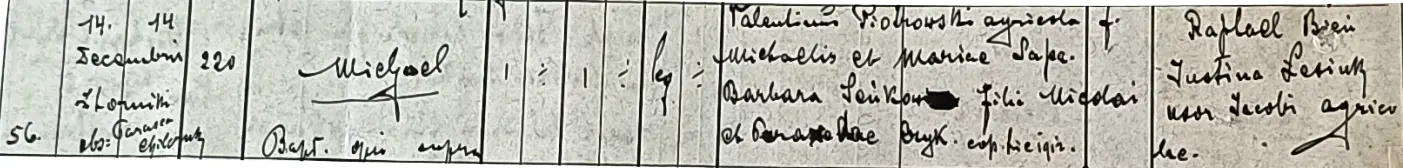 14. 14
Decembris
Zborniki
obs: Parasca
56.
220
Michael
Bapt. qui supra
1 ÷ 1 ÷ leg ÷
Valentinus Piotrowski agricola f.
Michaelis et Mariae Sapa.
Barbara filia Nicolai
et Bryk.
Raphael Bień
Justina Lesiuk
uxor Jacobi agrico
lae.